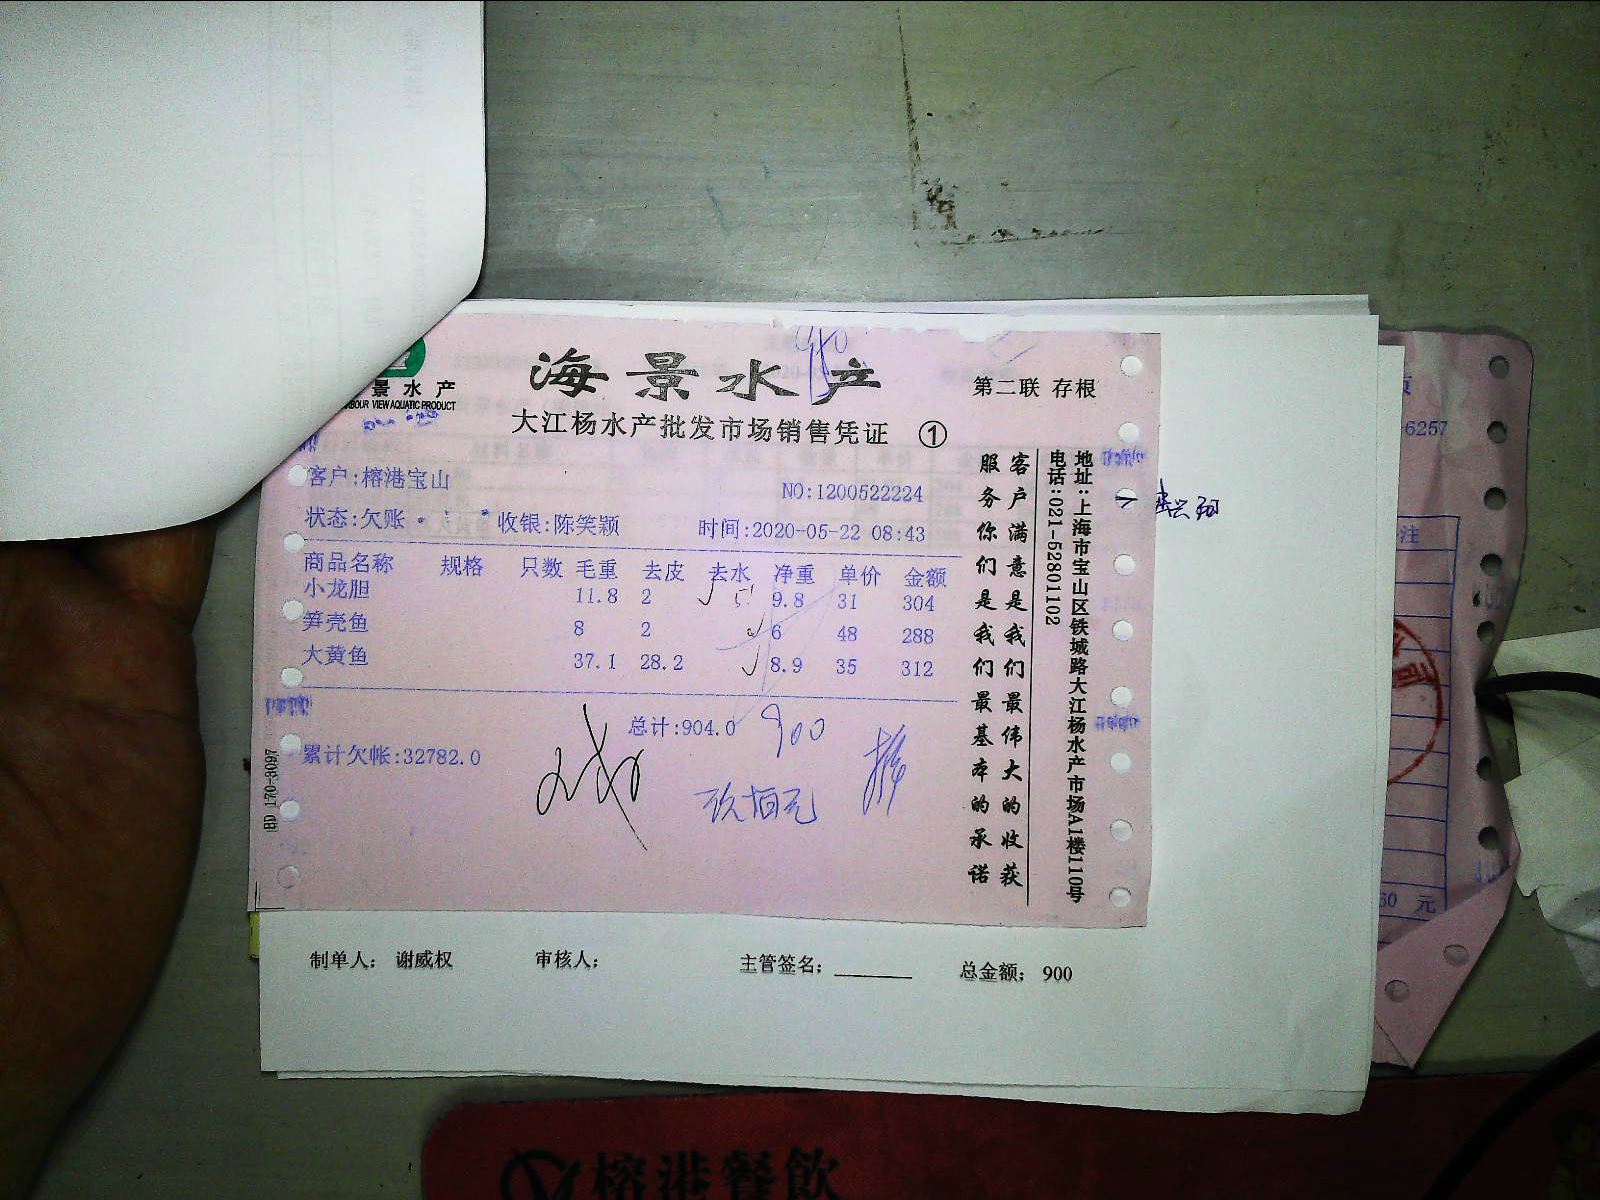 景水产
BOUR VIEW AQUATIC PRODUCT
海景水产
大江杨水产批发市场销售凭证 ①
第二联 存根
客户:榕港宝山
NO:1200522224
状态:欠账 收银:陈笑颖 时间:2020-05-22 08:43
商品名称 规格 只数 毛重 去皮 去水 净重 单价 金额
小龙胆 11.8 2 9.8 31 304
笋壳鱼 8 2 6 48 288
大黄鱼 37.1 28.2 8.9 35 312
总计:904.0 900
累计欠帐:32782.0
玖佰元
客户满意是我们最伟大的收获
服务你们是我们最基本的承诺
地址:上海市宝山区铁城路大江杨水产市场A1楼110号
电话:021-52801102
BD 170-8097
制单人: 谢威权 审核人: 主管签名: 总金额: 900
6257
注
元
榕港餐飲